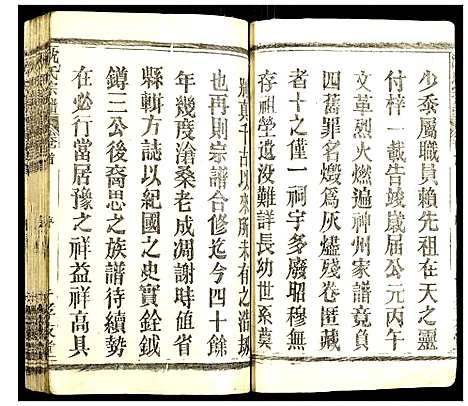 少忝屬職員賴先祖在天之靈
付梓一載告竣歲屆公元丙午
文革烈火燃遍神州家譜竟負
四舊罪名燬爲灰燼殘卷匿藏
者十之僅一祠宇多廢昭穆無
存祖塋遺没難詳長幼世系莫
辨真千古以來所未有之浩刼
也再則宗譜合修迄今四十餘
年幾度滄桑老成凋謝時値省
縣輯方誌以紀國之史實銓鉞
鐏三公後裔思之族譜待續勢
在必行當居豫之祥益祥高具
氏宗譜
卷首